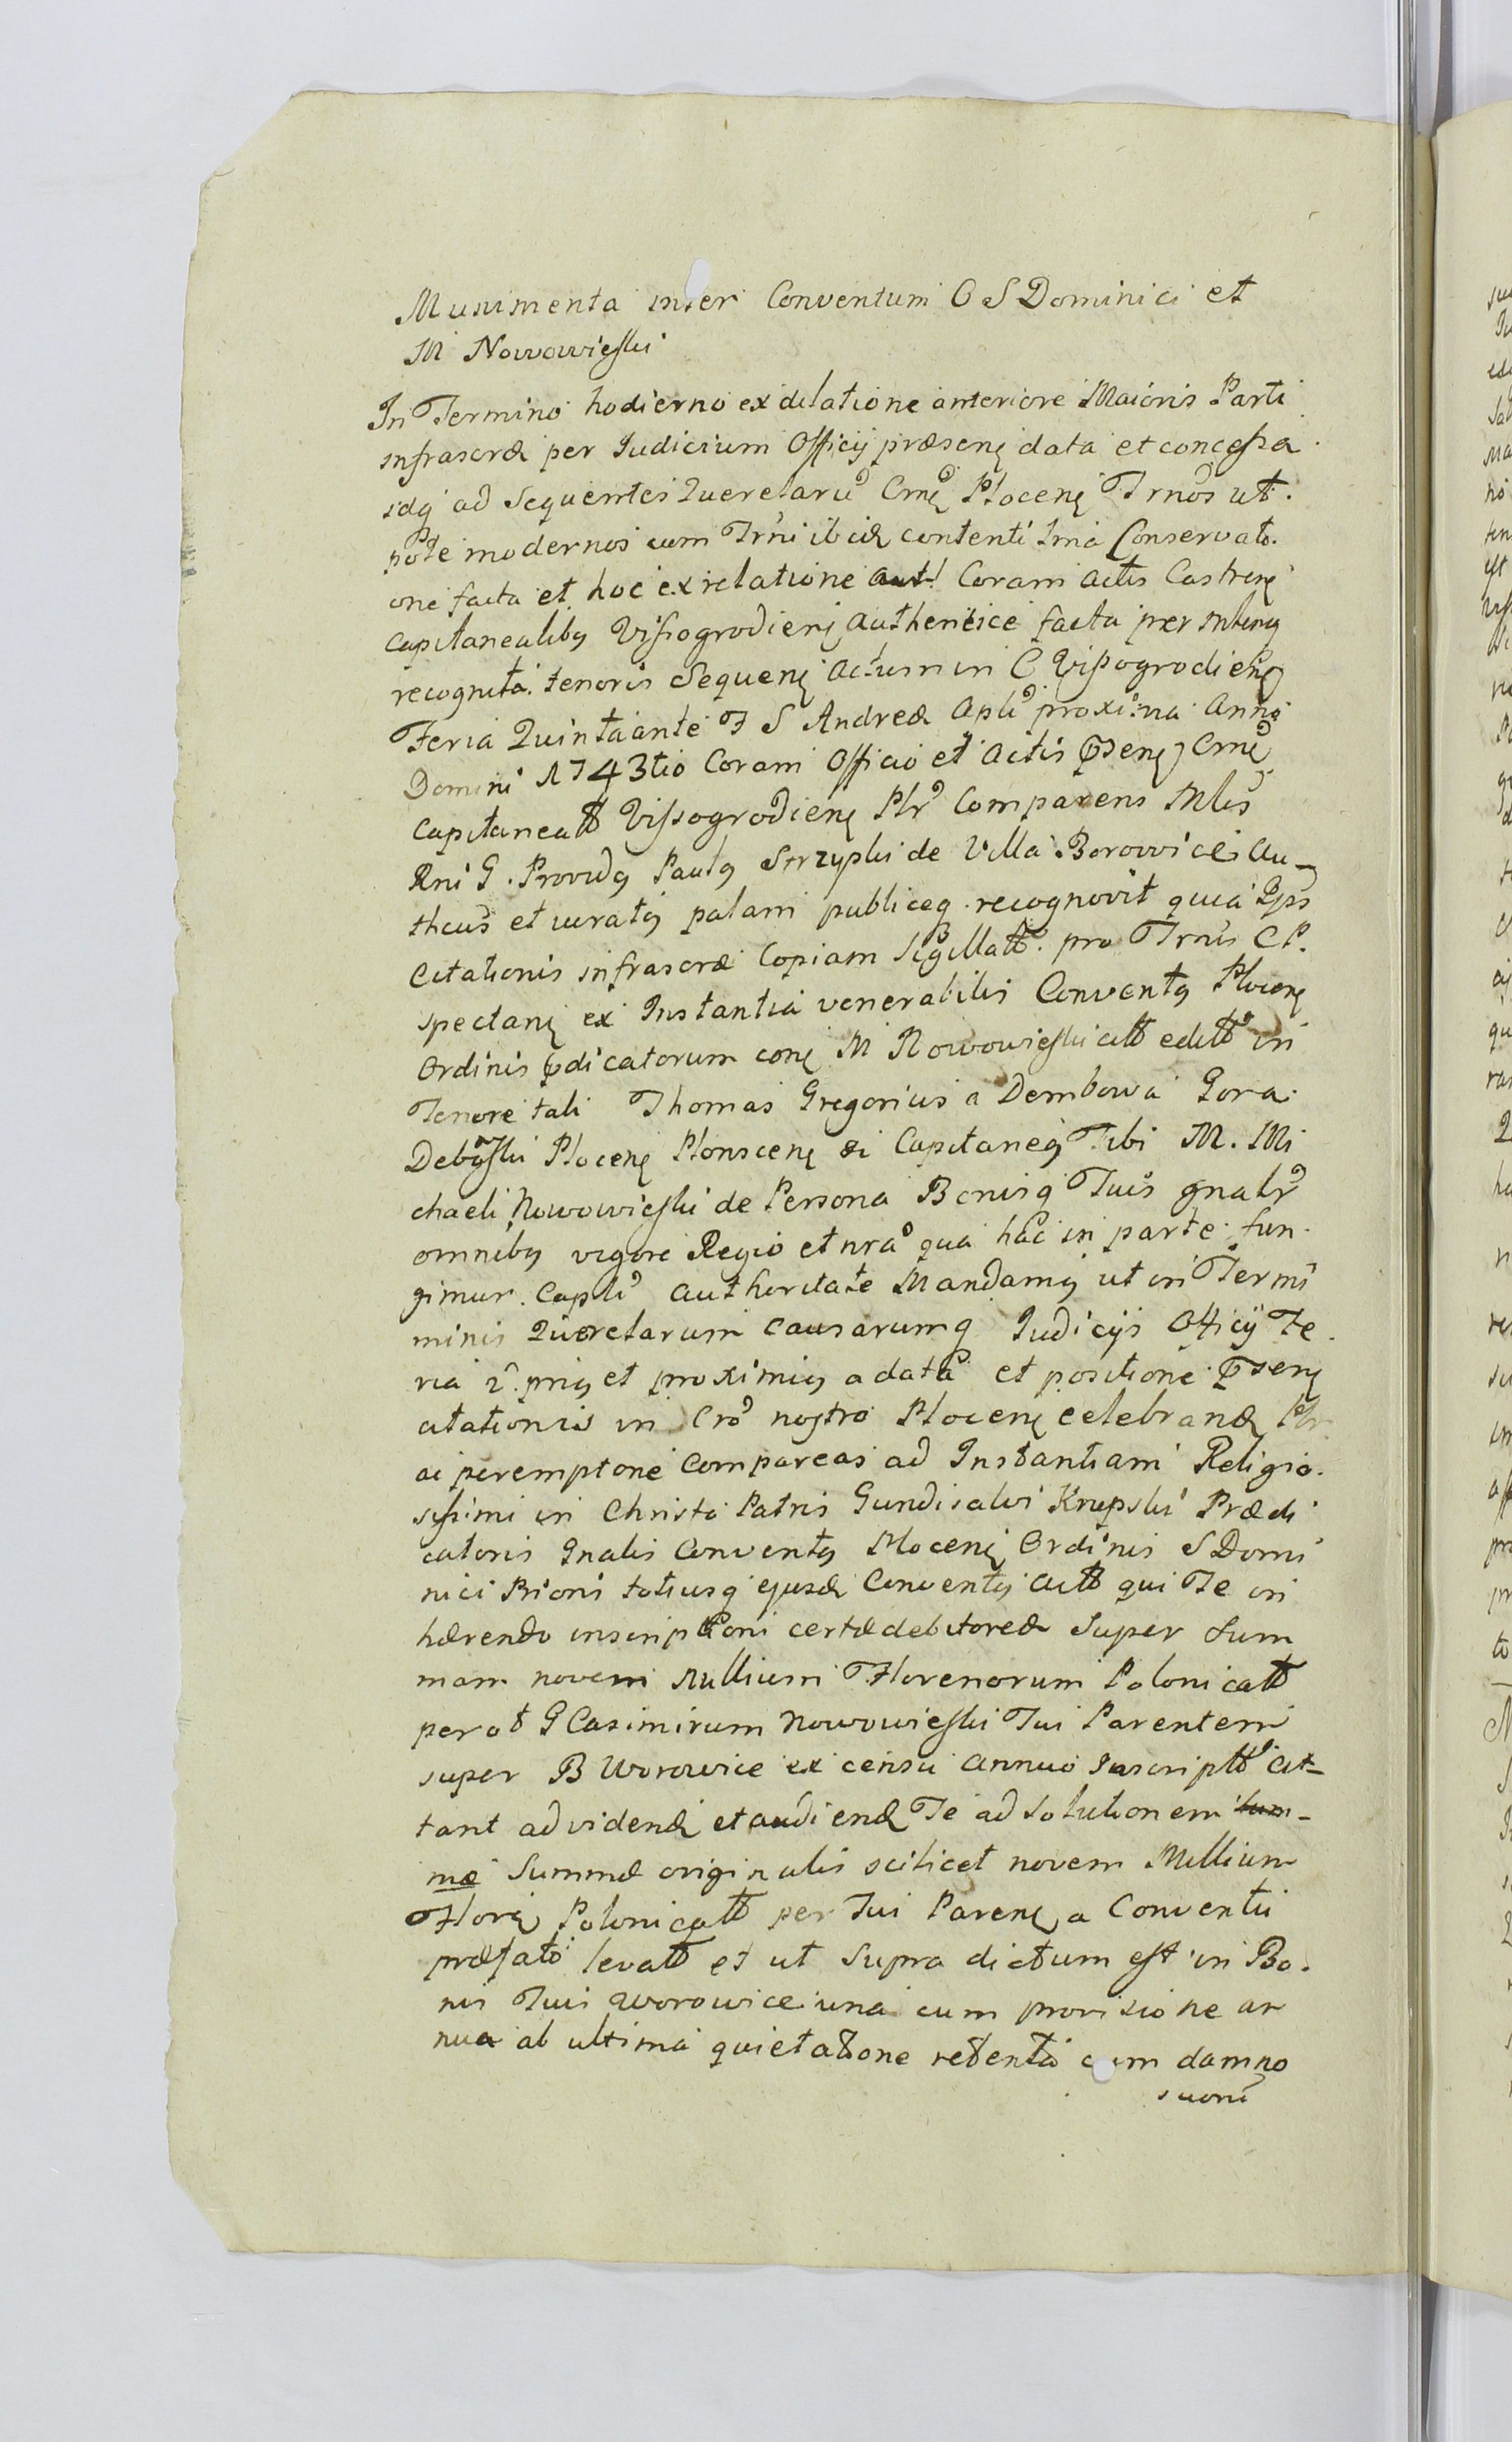 Munimenta inter Conventum O S Dominici et
M Nowowieyski
In Termino hodierno ex dilatione anteriore Maioris Parti
infrascræ per Iudicium Officij præsenę data et concessa
idq ad Sequentes Querelarū Crnę Plocenę Trnos ut.
pote modernos cum Trni ibidæ contenti Conservato.
one facta et hoc ex relatione aut! Coram actis Castrenę
capitanealibg Vissogrodienę authentice facta per
recognita tenoris Sequenę Actum in C Vissogrodienę
Feria Quinta ante F S Andreæ Apli proxima Anno
Domini 1743tio Coram Officio et Actis Pṣenę Crnę
Capitaneatt Vissogrodienę Plr Comparens Mlis
Rni G. Providg Paulg Strzypki de Villa Borowice Au-
thcus et iuratg palam publiceq recognovit quia Ips
Citationis infrascræ Copiam Sigillatt. pro Trnis C P.
spectanę ex Instantia venerabilis Conventg Plocenę
Ordinis pdicatorum conę M Nowowieyski citt editt in
Tenore tali Thomas Gregorius a Dembowa Gora
Plocenę Plonscenę &i Capitaneg Tibi M. Mi
chaeli Nowowieyski de Persona Bonisq Tuis gnalr
omnibg vigore Regio et nra qua hac in parte fun.
gimur. Capli authoritate Mandamg ut in Termi
minis Querelarum causarumq Iudicijs Officij Fe.
ria 2. prig et proximig a data et positione Pṣenę
citationis in Cro nostro Plocenę celebranæ Plr
ac peremptone Compareas ad Instantiam Religio.
sissimi in Christo Patris Gundisalvi Krupski Prædi
catoris Gnalis Conventg Plocenę Ordinis S Domi
nici Prioris totiusq ejusdæ Conventg Actt qui Te in
hærendo inscriptioni certæ debitoreæ Super Sum
mam novem Millium Florenorum Polonicatt
per ol G Casimirum Nowowieyski Tui Parentem
super B Worowice ex censu annuo Inscriptt Cit-
tant ad videnæ et audienæ Te ad Solutionem sum-
mæ Summæ originalis scilicet novem Millium
Florę Polonicatt per Tui Parenę a Conventu
præfato levatt et ut Supra dictum est in Bo.
nis Tuis Worowice una cum provisione an
nua ab ultima quietatione retenta cum damno
suorū